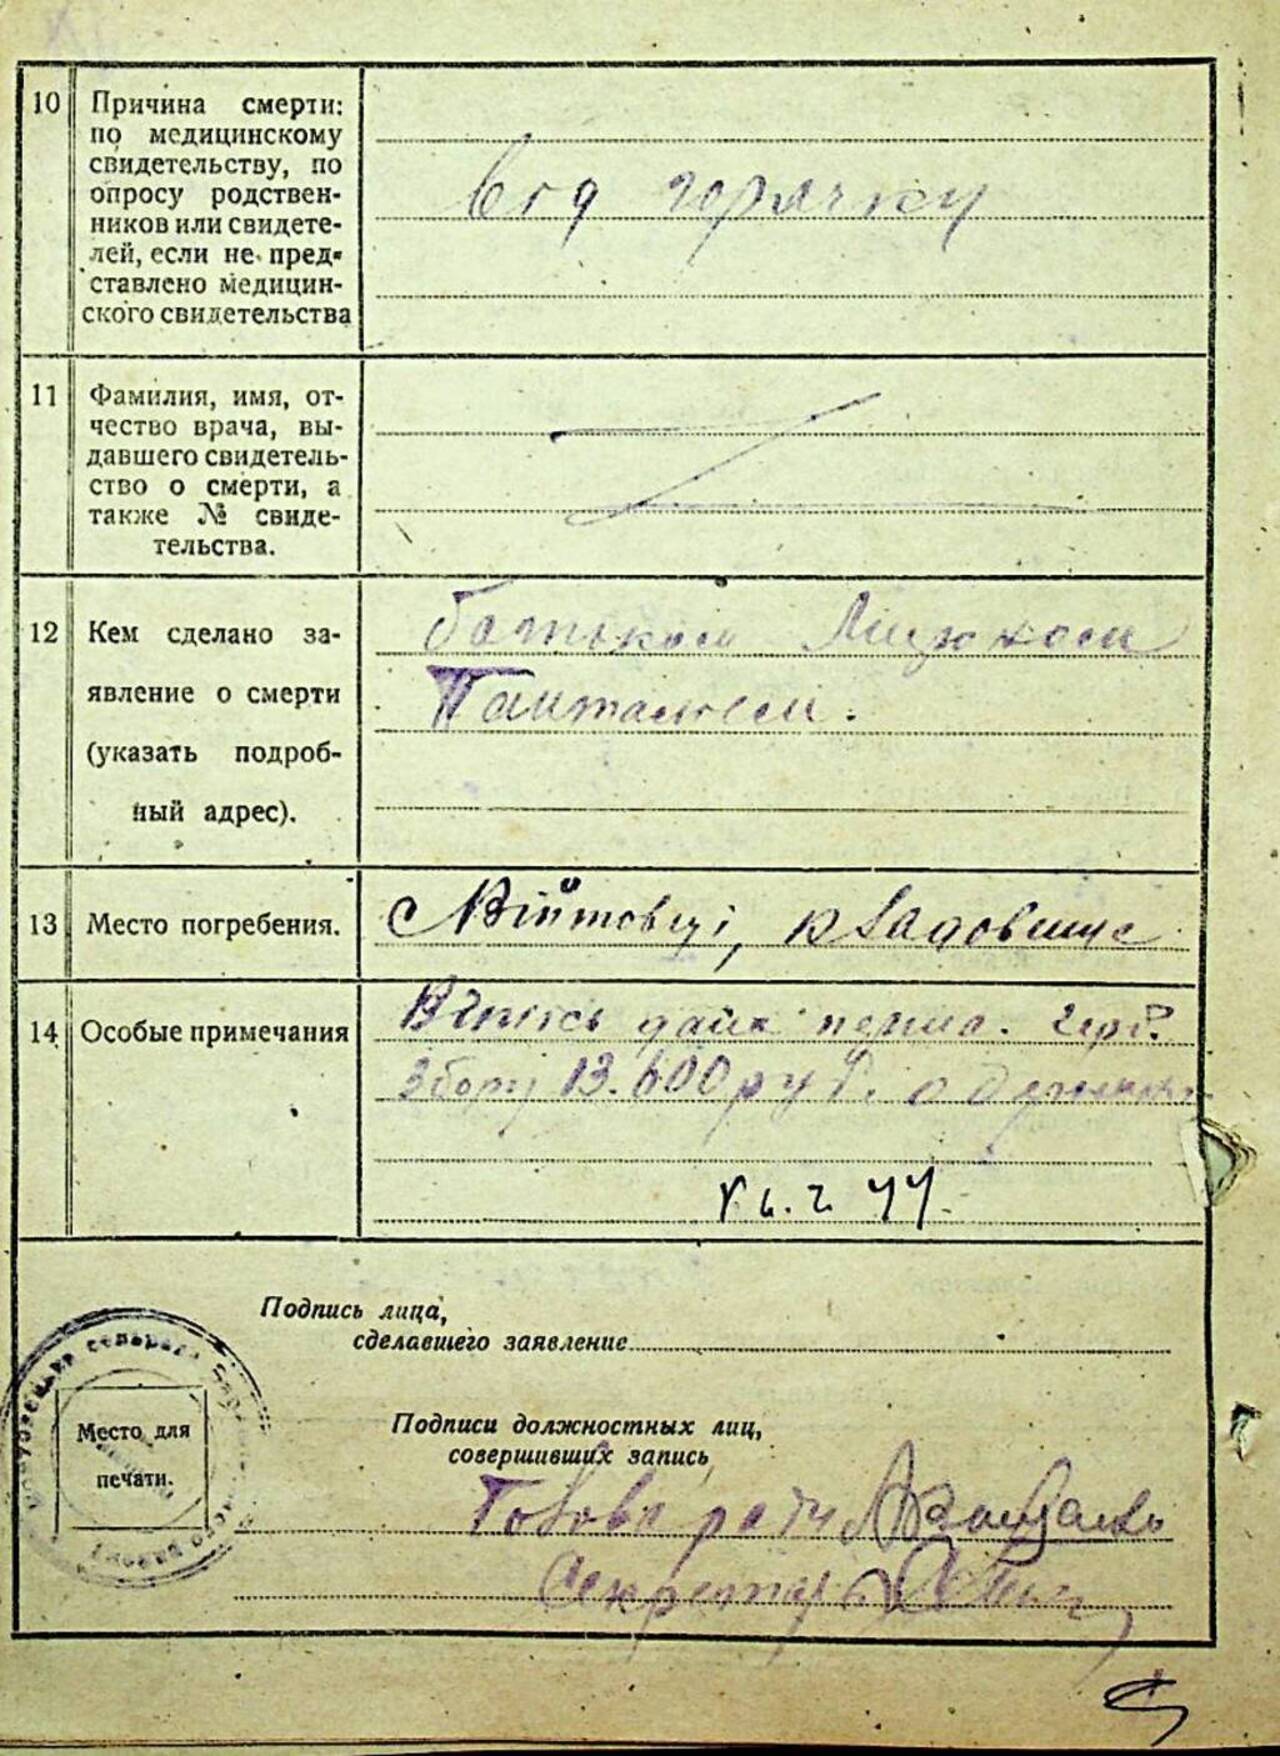 10 Причина смерти:
по медицинскому
свидетельству, по
опросу родствен-
ников или свидете-
лей, если не пред-
ставлено медицин-
ского свидетельства
від горячку
11 Фамилия, имя, от-
чество врача, вы-
давшего свидетель-
ство о смерти, а
также № свиде-
тельства.
12 Кем сделано за-
явление о смерти
(указать подроб-
ный адрес).
батьком
13 Место погребения.
с Війтовці, кладовище
14 Особые примечания
збору 13.600 руб.
Подпись лица,
сделавшего заявление
Место для
печати.
Подписи должностных лиц,
совершивших запись
Голова ради
Секретарь